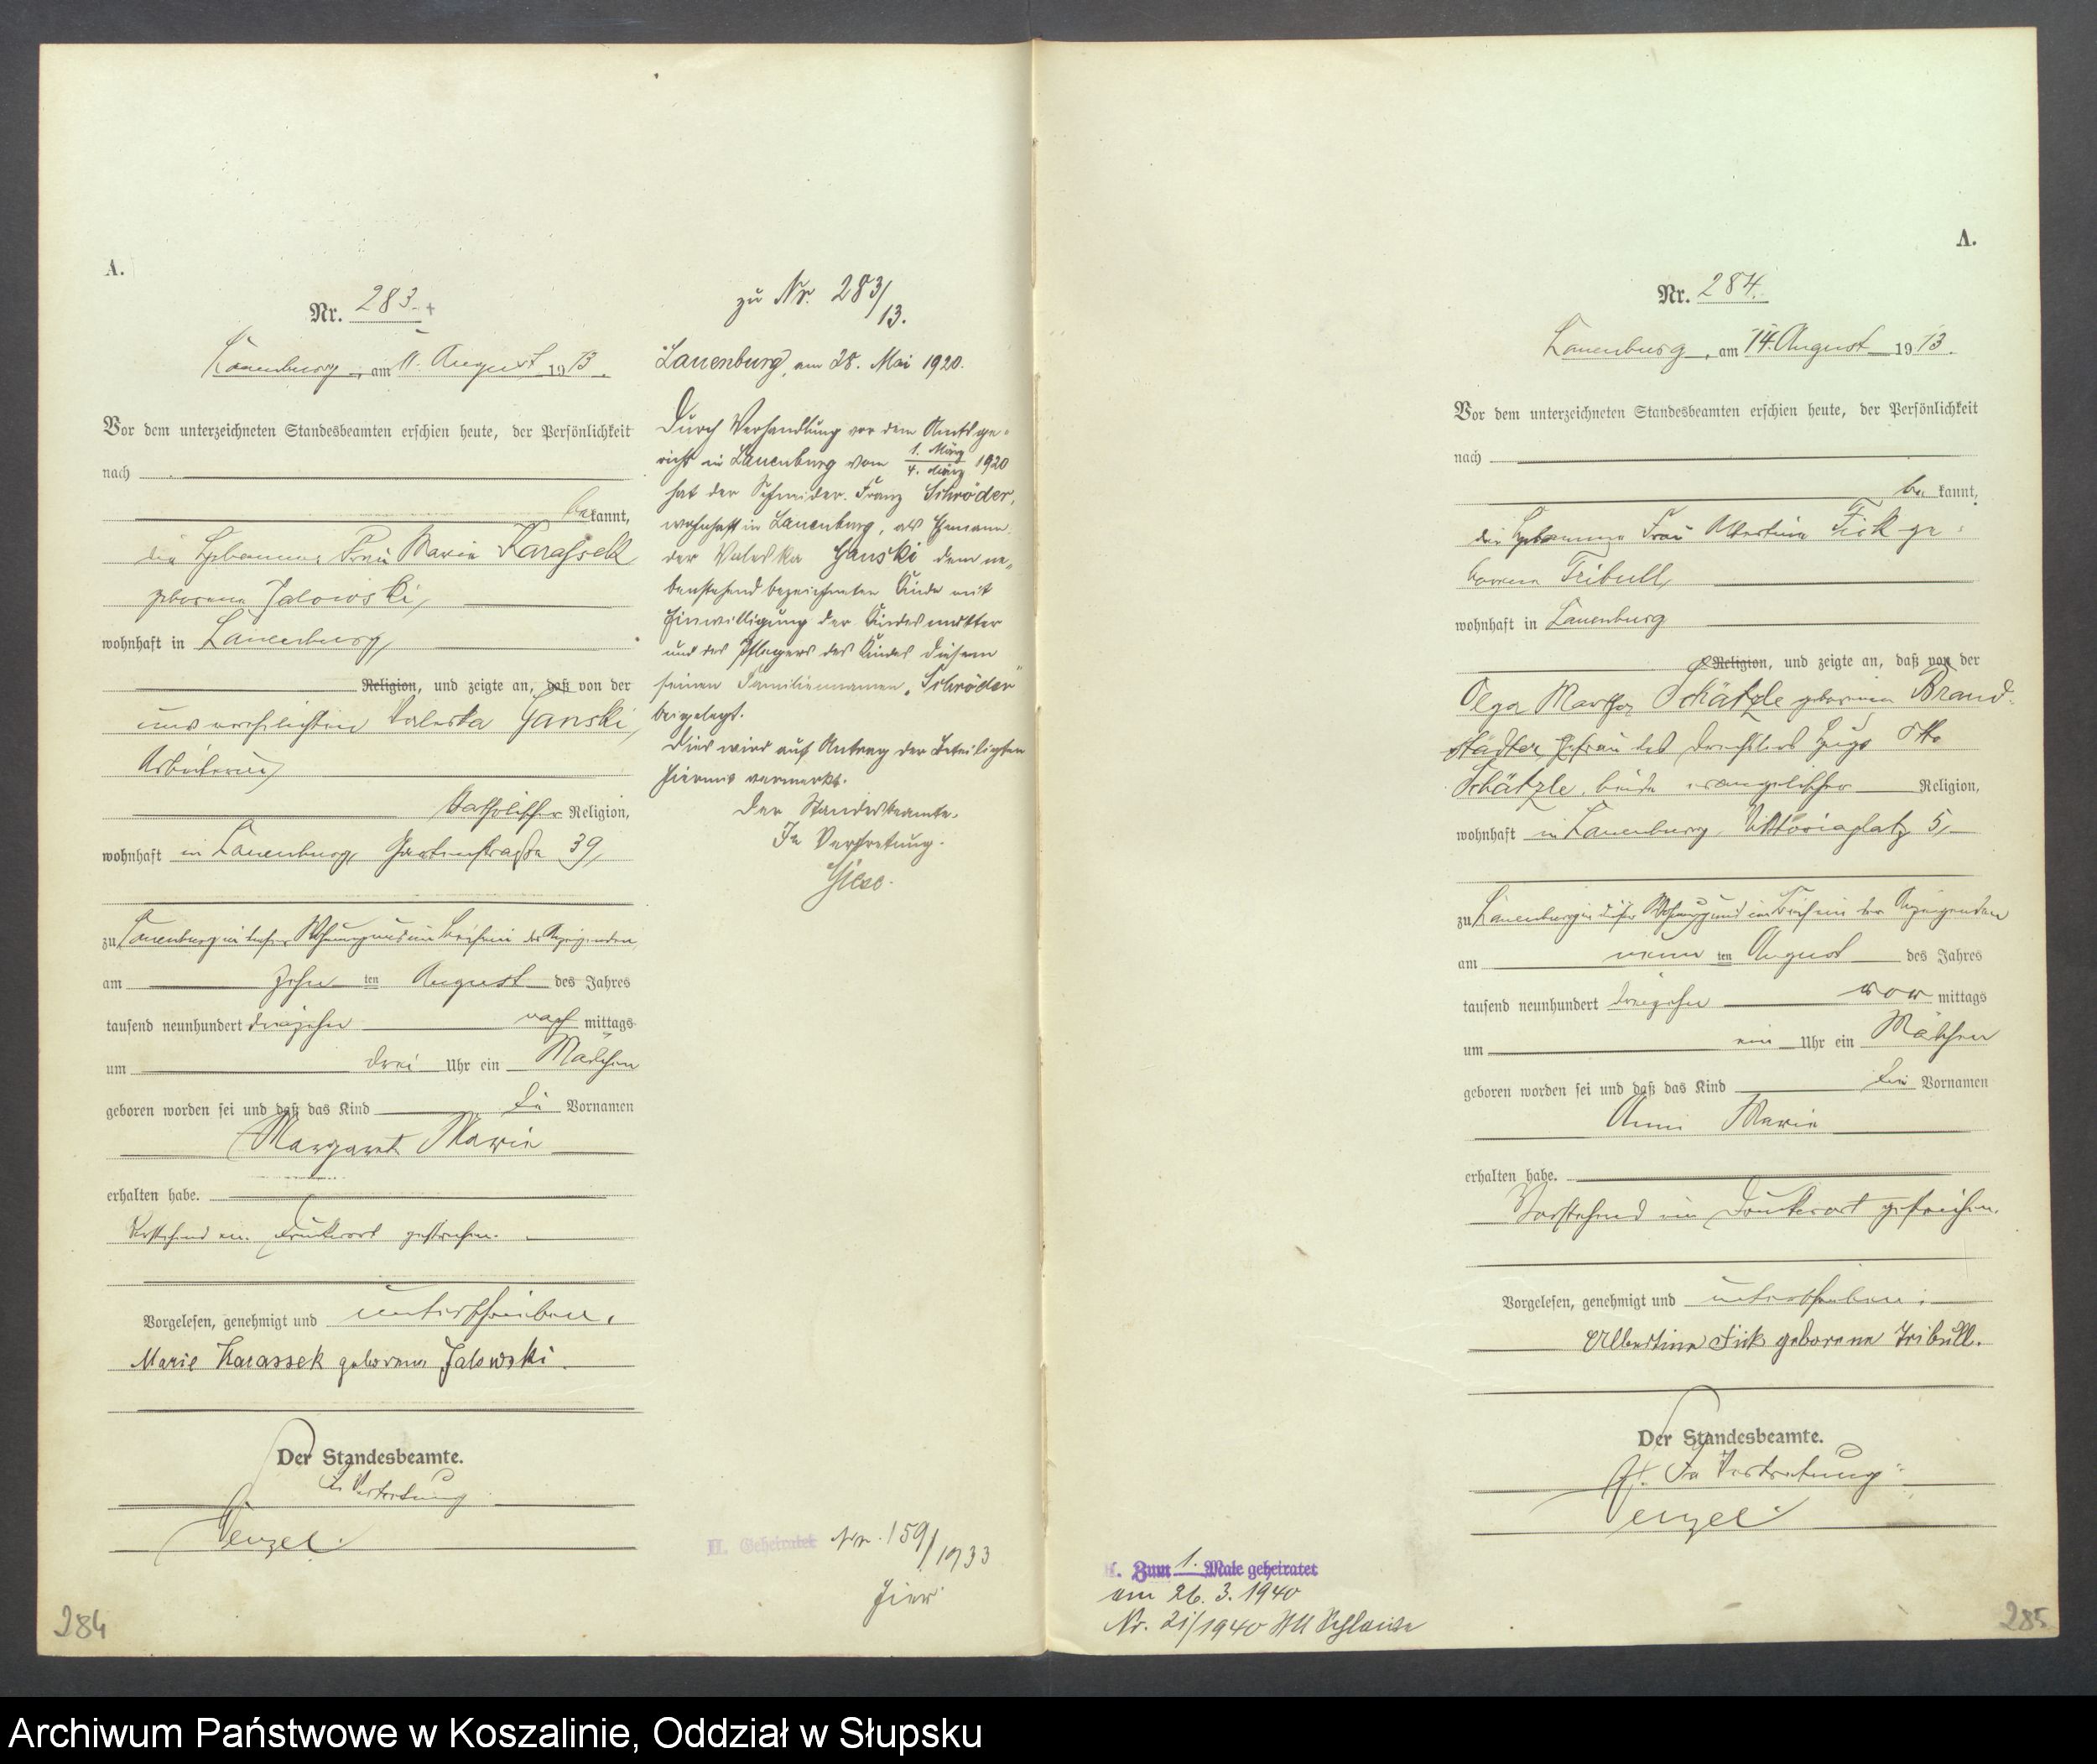 A.
Nr. 283.
Lauenburg, am 11. August 1913.
Vor dem unterzeichneten Standesbeamten erschien heute, der Persönlichkeit
nach
bekannt,
die Hebamme Frau Marie Karassek
geborene Jalowski,
wohnhaft in Lauenburg,
Religion, und zeigte an, daß von der
unverehelichten Valeska Hanski,
Arbeiterin,
katholischer Religion,
wohnhaft in Lauenburg, Gartenstraße 39,
zu Lauenburg in dieser Wohnung und im Beisein der Anzeigenden,
am zehn ten August des Jahres
tausend neunhundert dreizehn nach mittags
um drei Uhr ein Mädchen
geboren worden sei und daß das Kind die Vornamen
Margaret Marie
erhalten habe.
Vorstehend ein Druckwort gestrichen.
Vorgelesen, genehmigt und unterschrieben.
Marie Karassek geborene Jalowski.
Der Standesbeamte.
In Vertretung
Wenzel.
284
zu Nr. 283/13.
Lauenburg, am 28. Mai 1920.
Durch Verhandlung vor dem Amtsge-
richt in Lauenburg vom 1. März / 4. März 1920
hat der Schneider Franz Schröder,
wohnhaft in Lauenburg, als Ehemann
der Valeska Hanski dem ne-
benstehend bezeichneten Kinde mit
Einwilligung der Kindesmutter
und des Pflegers des Kindes diesem
seinen Familiennamen „Schröder“
beigelegt.
Dies wird auf Antrag der Beteiligten
hiermit vermerkt.
Der Standesbeamte.
In Vertretung.
II. Geheiratet Nr. 159/1933
hier.
A.
Nr. 284.
Lauenburg, am 14. August 1913.
Vor dem unterzeichneten Standesbeamten erschien heute, der Persönlichkeit
nach
be kannt,
die Hebamme Frau Albertine Fick ge-
borene Tribull,
wohnhaft in Lauenburg
Religion, und zeigte an, daß von der
Olga Martha Schätzle geborenen Brand-
städter, Ehefrau des Drechslers Hugo Otto
Schätzle, beide evangelischer Religion,
wohnhaft in Lauenburg, Viktoriaplatz 5,
zu Lauenburg in dieser Wohnung und im Beisein der Anzeigenden
am neun ten August des Jahres
tausend neunhundert dreizehn vor mittags
um ein Uhr ein Mädchen
geboren worden sei und daß das Kind die Vornamen
Anni Marie
erhalten habe.
Vorstehend ein Druckwort gestrichen.
Vorgelesen, genehmigt und unterschrieben.
Albertine Fick geborene Tribull.
Der Standesbeamte.
In Vertretung
Wenzel
Zum 1. Male geheiratet
am 26.3.1940
Nr. 21/1940
285
Archiwum Państwowe w Koszalinie, Oddział w Słupsku